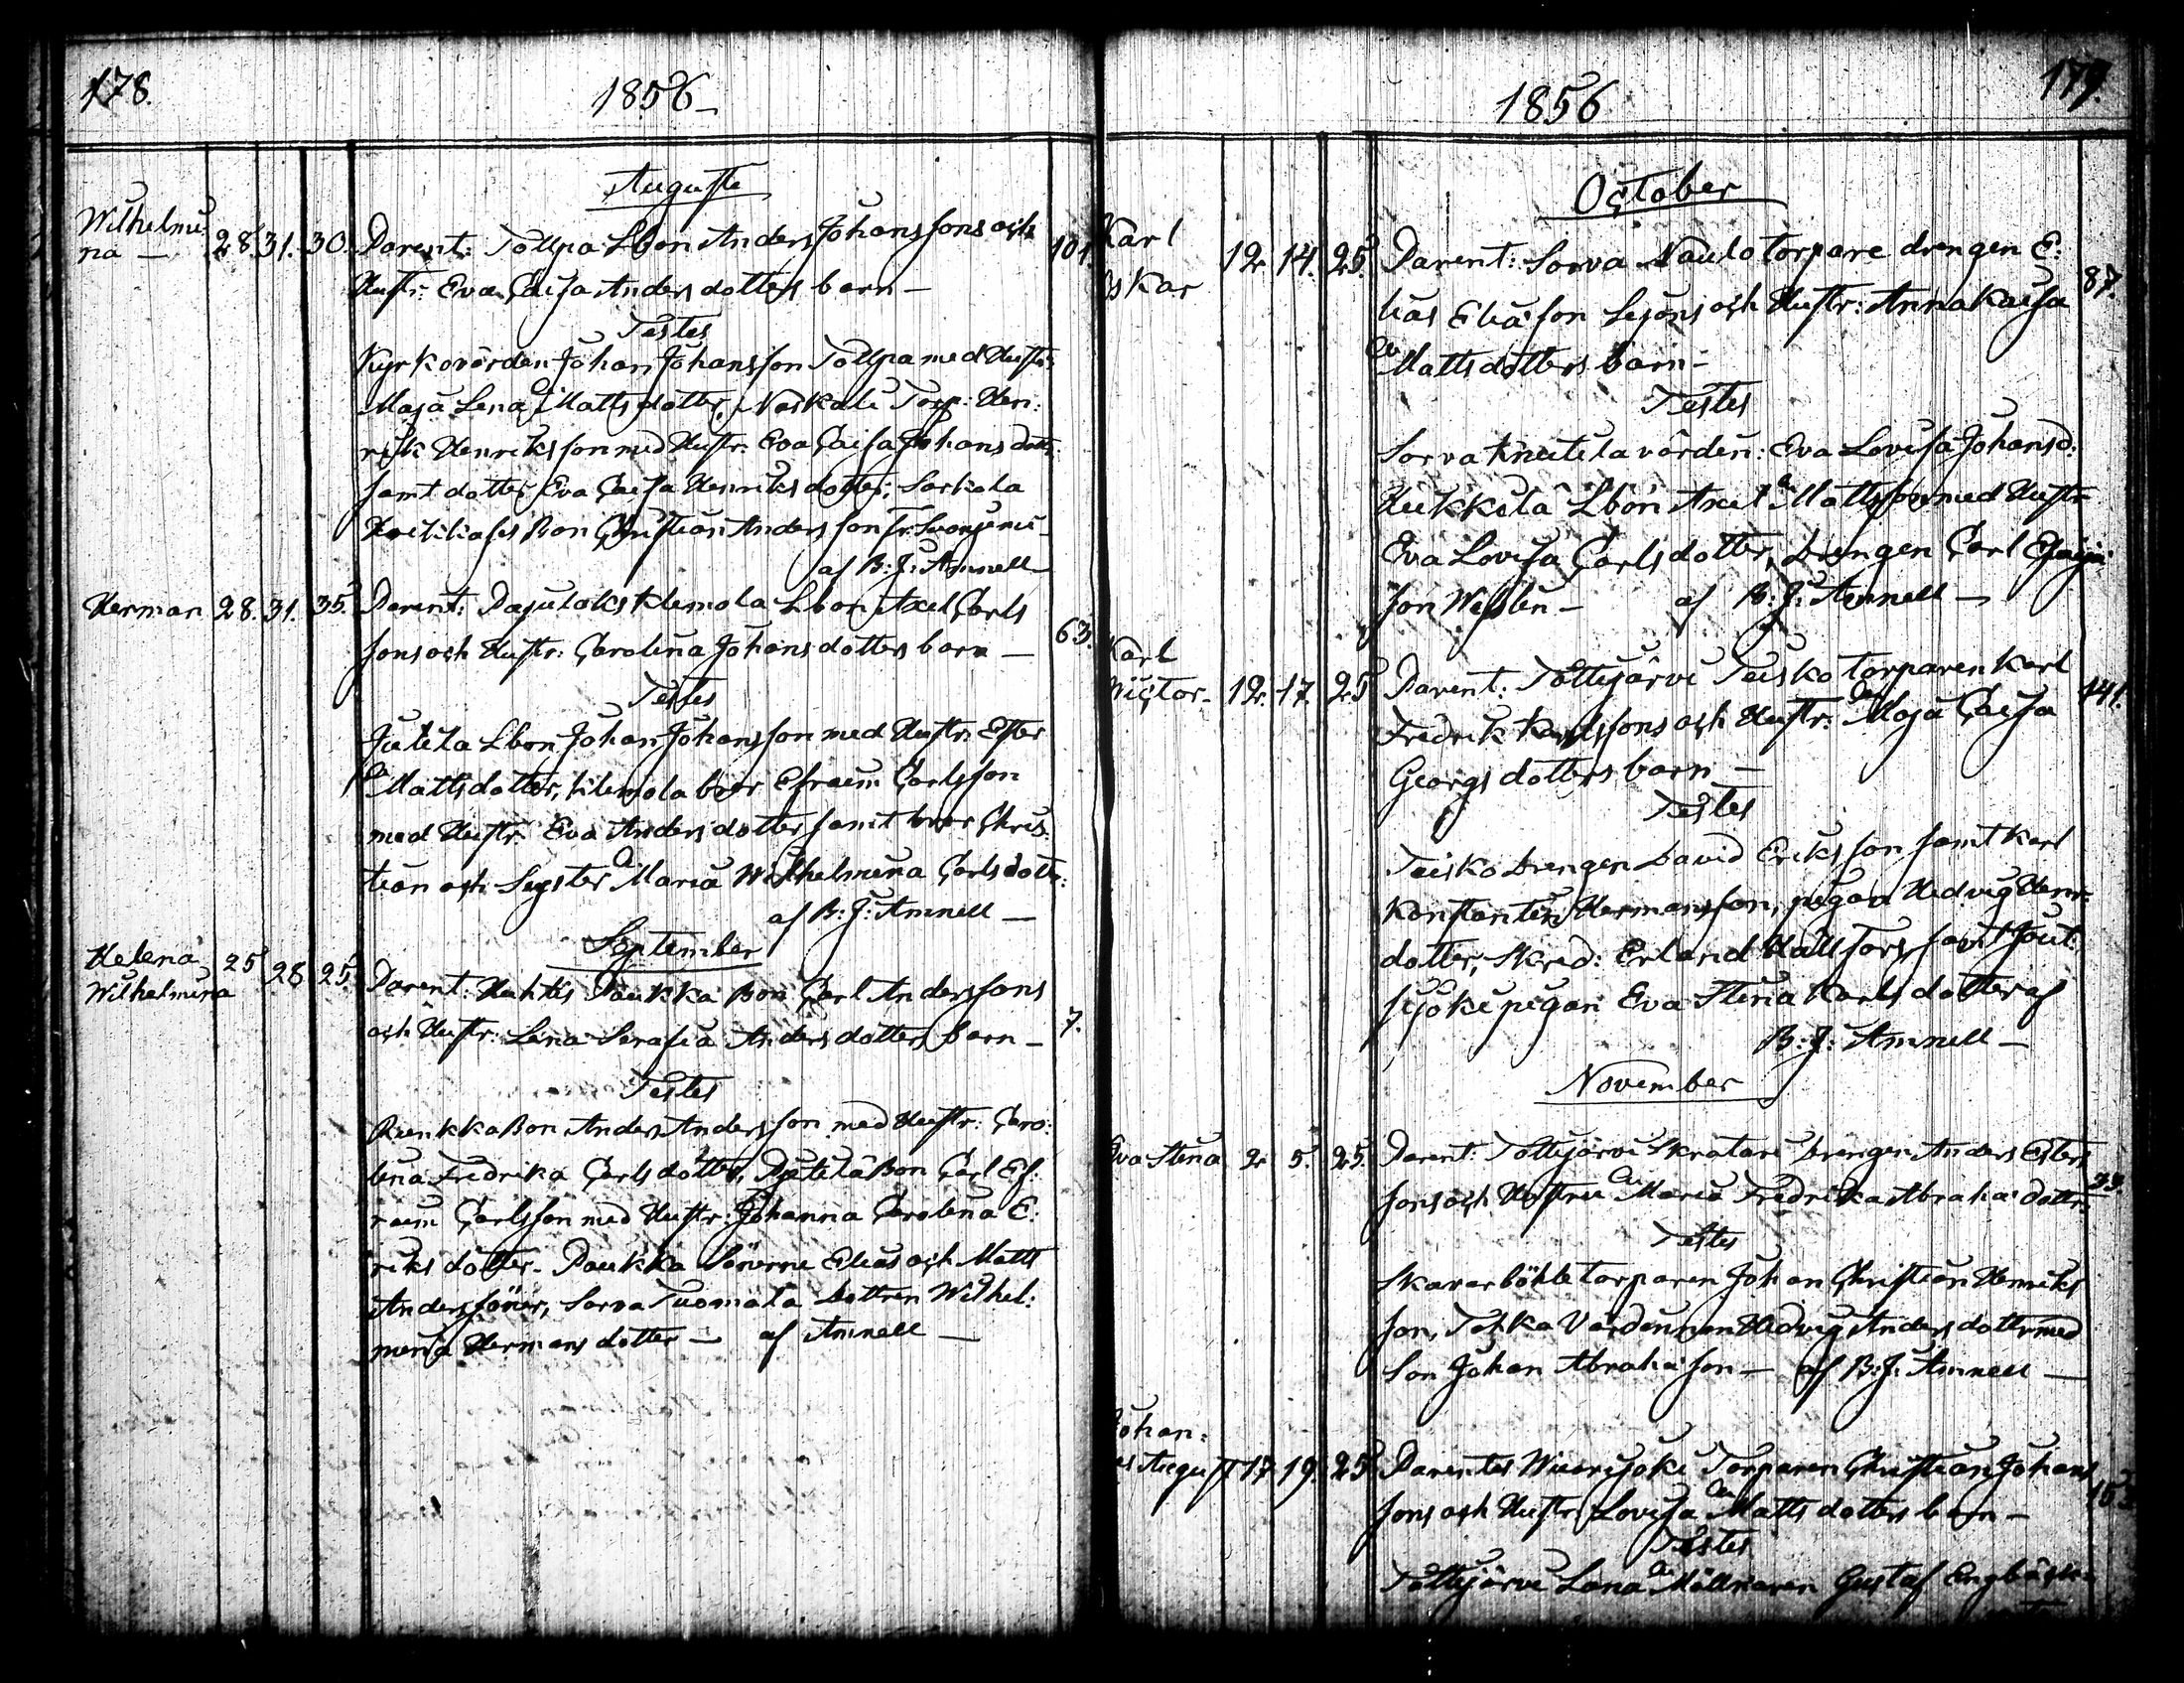 178.
1856
Augusti
Wilhelmi
na — 28. 31. 30. Parent: Tollpa Lbon Anders Johanssons och 101.
Hustr: Eva Caisa Andersdotters barn —
Testes
Kyrkovärden Johan Johansson Tollpa med Hustr:
Maja Lena Mattsdotter, Naskali Torp: Hen:
rik Henriksson med Hustr: Eva Caisa Johans dotter
samt dotter Eva Caisa Henriksdotter, Sorkala
Bon Christian Andersson
af B: J: Amnell
Herman 28. 31. 35. Parent: Pajulaks Klemola Lbon Axel Carls
sons och Hustr: Carolina Johansdotters barn — 63.
Testes
Jutila Lbon Johan Johansson med Hustr: Ester
Mattsdotter, Klemola bror Efraim Carlsson
med Hustr: Eva Andersdotter samt bror Chris
tian och Syster Maria Wilhelmina Carlsdotter:
af B: J: Amnell —
September
Helena
Wilhelmina 25 28 25. Parent: Huhtis Paukka Bon Carl Anderssons
och Hustr: Lena Serafia Andersdotters barn — 7.
Testes
Bon Anders Andersson med Hustr: Caro:
lina Fredrika Carlsdotter, Bon Carl Ef:
raim Carlsson med Hustr: Johanna Carolina E:
riksdotter. Paukka Sönerne Elias och Matts
Anderssöner, Sorva Tuomala dottren Wilhel:
mina Hermansdotter — af Amnell —
179.
1856
October
Karl
Oskar 12. 14. 25. Parent: Sorva Naulo torpare drengen E: 87.
lias Eliasson Sejons och Hustr: Anna Kaisa
Mattsdotters barn —
Testes
Sorva Knuutila värden: Eva Lovisa Johansd:
Lbon Axel Mattsson med Hustr
Eva Lovisa Carlsdotter, Drengen Carl
son — af B: J: Amnell —
Karl
Victor. 12. 17. 25 Parent: Tottijärvi Teisko torparen Karl 141.
Fredrik Karlssons och Hustr: Maja Caisa
Georgsdotters barn —
Testes
Teisko Drengen David Eriksson samt Karl
Konstantin Hermansson, pigan Hedvig Herm:
dotter, Skred: Erland Hallfors samt Jout:
sijoki pigan Eva Stina Karlsdotter af
B: J: Amnell —
November
Eva Stina 2. 5. 25. Parent: Tottijärvi Skratari Drengen Anders Esters
sons och Hustru Maria Fredrika Abraha: dottr: 33.
Testes
Skavarböhle torparen Johan Christian Henriks
son, Värdinnan Hedvig Andersdotter med
Son Johan Abrahason — af B: J: Amnell —
Johan:
es August 17 19. 25 Parentes Wuorijoki Torparen Christian Johans
sons och Hustr: Lovisa Mattsdotters barn —
Testes
Tottijärvi Lana Möllnaren Gustaf